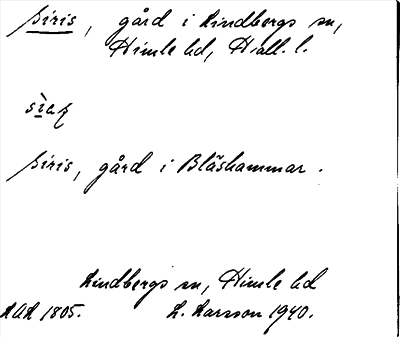 Siris, gård i Lindbergs sn,
Himle hd, Hall. l.
Siris, gård i Blåshammar.
Lindbergs sn, Himle hd
1805. L. Larsson 1940.